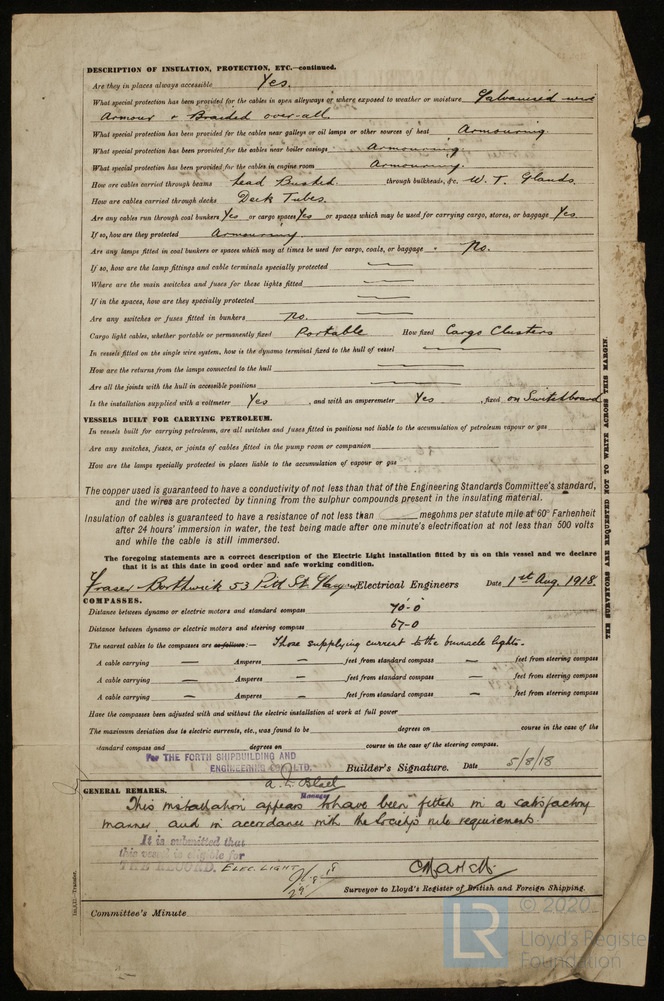 DESCRIPTION OF INSULATION, PROTECTION, ETC.—continued.
Are they in places always accessible Yes.
What special protection has been provided for the cables in open alleyways or where exposed to weather or moisture Galvanised wire
Armour & Braided over-all
What special protection has been provided for the cables near galleys or oil lamps or other sources of heat Armouring.
What special protection has been provided for the cables near boiler casings Armouring.
What special protection has been provided for the cables in engine room Armouring.
How are cables carried through beams Lead Bushed. through bulkheads, &c. W. T. Glands.
How are cables carried through decks Deck Tubes.
Are any cables run through coal bunkers Yes or cargo spaces Yes or spaces which may be used for carrying cargo, stores, or baggage Yes
If so, how are they protected Armouring.
Are any lamps fitted in coal bunkers or spaces which may at times be used for cargo, coals, or baggage No.
If so, how are the lamp fittings and cable terminals specially protected
Where are the main switches and fuses for these lights fitted
If in the spaces, how are they specially protected
Are any switches or fuses fitted in bunkers No.
Cargo light cables, whether portable or permanently fixed Portable How fixed Cargo Clusters
In vessels fitted on the single wire system, how is the dynamo terminal fixed to the hull of vessel
How are the returns from the lamps connected to the hull
Are all the joints with the hull in accessible positions
Is the installation supplied with a voltmeter Yes , and with an amperemeter Yes , fixed on Switchboard
VESSELS BUILT FOR CARRYING PETROLEUM.
In vessels built for carrying petroleum, are all switches and fuses fitted in positions not liable to the accumulation of petroleum vapour or gas
Are any switches, fuses, or joints of cables fitted in the pump room or companion
How are the lamps specially protected in places liable to the accumulation of vapour or gas
The copper used is guaranteed to have a conductivity of not less than that of the Engineering Standards Committee's standard,
and the wires are protected by tinning from the sulphur compounds present in the insulating material.
Insulation of cables is guaranteed to have a resistance of not less than megohms per statute mile at 60° Farhenheit
after 24 hours' immersion in water, the test being made after one minute's electrification at not less than 500 volts
and while the cable is still immersed.
The foregoing statements are a correct description of the Electric Light installation fitted by us on this vessel and we declare
that it is at this date in good order and safe working condition.
Fraser Borthwick 53 Pitt St. Glasgow Electrical Engineers Date 1st Aug. 1918.
COMPASSES.
Distance between dynamo or electric motors and standard compass 70-0
Distance between dynamo or electric motors and steering compass 67-0
The nearest cables to the compasses are as follows:— Those supplying current to the binnacle lights.
A cable carrying — Amperes — feet from standard compass — feet from steering compass
A cable carrying — Amperes — feet from standard compass — feet from steering compass
A cable carrying — Amperes — feet from standard compass — feet from steering compass
Have the compasses been adjusted with and without the electric installation at work at full power
The maximum deviation due to electric currents, etc., was found to be degrees on course in the case of the
standard compass and degrees on course in the case of the steering compass.
For THE FORTH SHIPBUILDING AND
ENGINEERING Co. LTD. Builder's Signature. Date 5/8/18
Manager
GENERAL REMARKS.
This installation appears to have been fitted in a satisfactory
manner and in accordance with the Society's rule requirements.
It is submitted that
this vessel is eligible for
THE RECORD. ELEC. LIGHT
Surveyor to Lloyd's Register of British and Foreign Shipping.
Committee's Minute
THE SURVEYORS ARE REQUESTED NOT TO WRITE ACROSS THIS MARGIN.
LR
© 2020
Lloyd's Register
Foundation